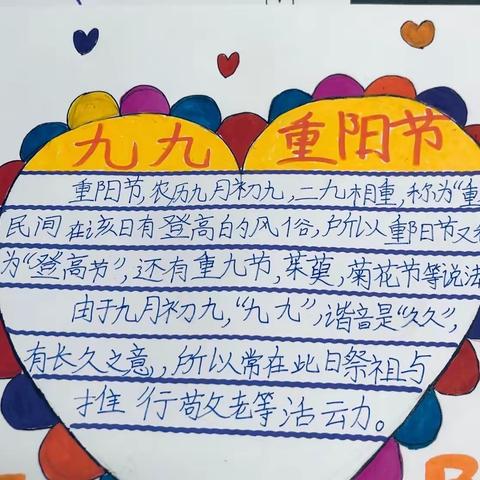 九九 重阳节
重阳节，农历九月初九，二九相重，称为“重
民间在该日有登高的风俗，所以重阳节又
为“登高节”，还有重九节，茱萸，菊花节等说法
由于九月初九，“九九”，谐音是“久久”，
有长久之意，所以常在此日祭祖与
推行敬老等活动。